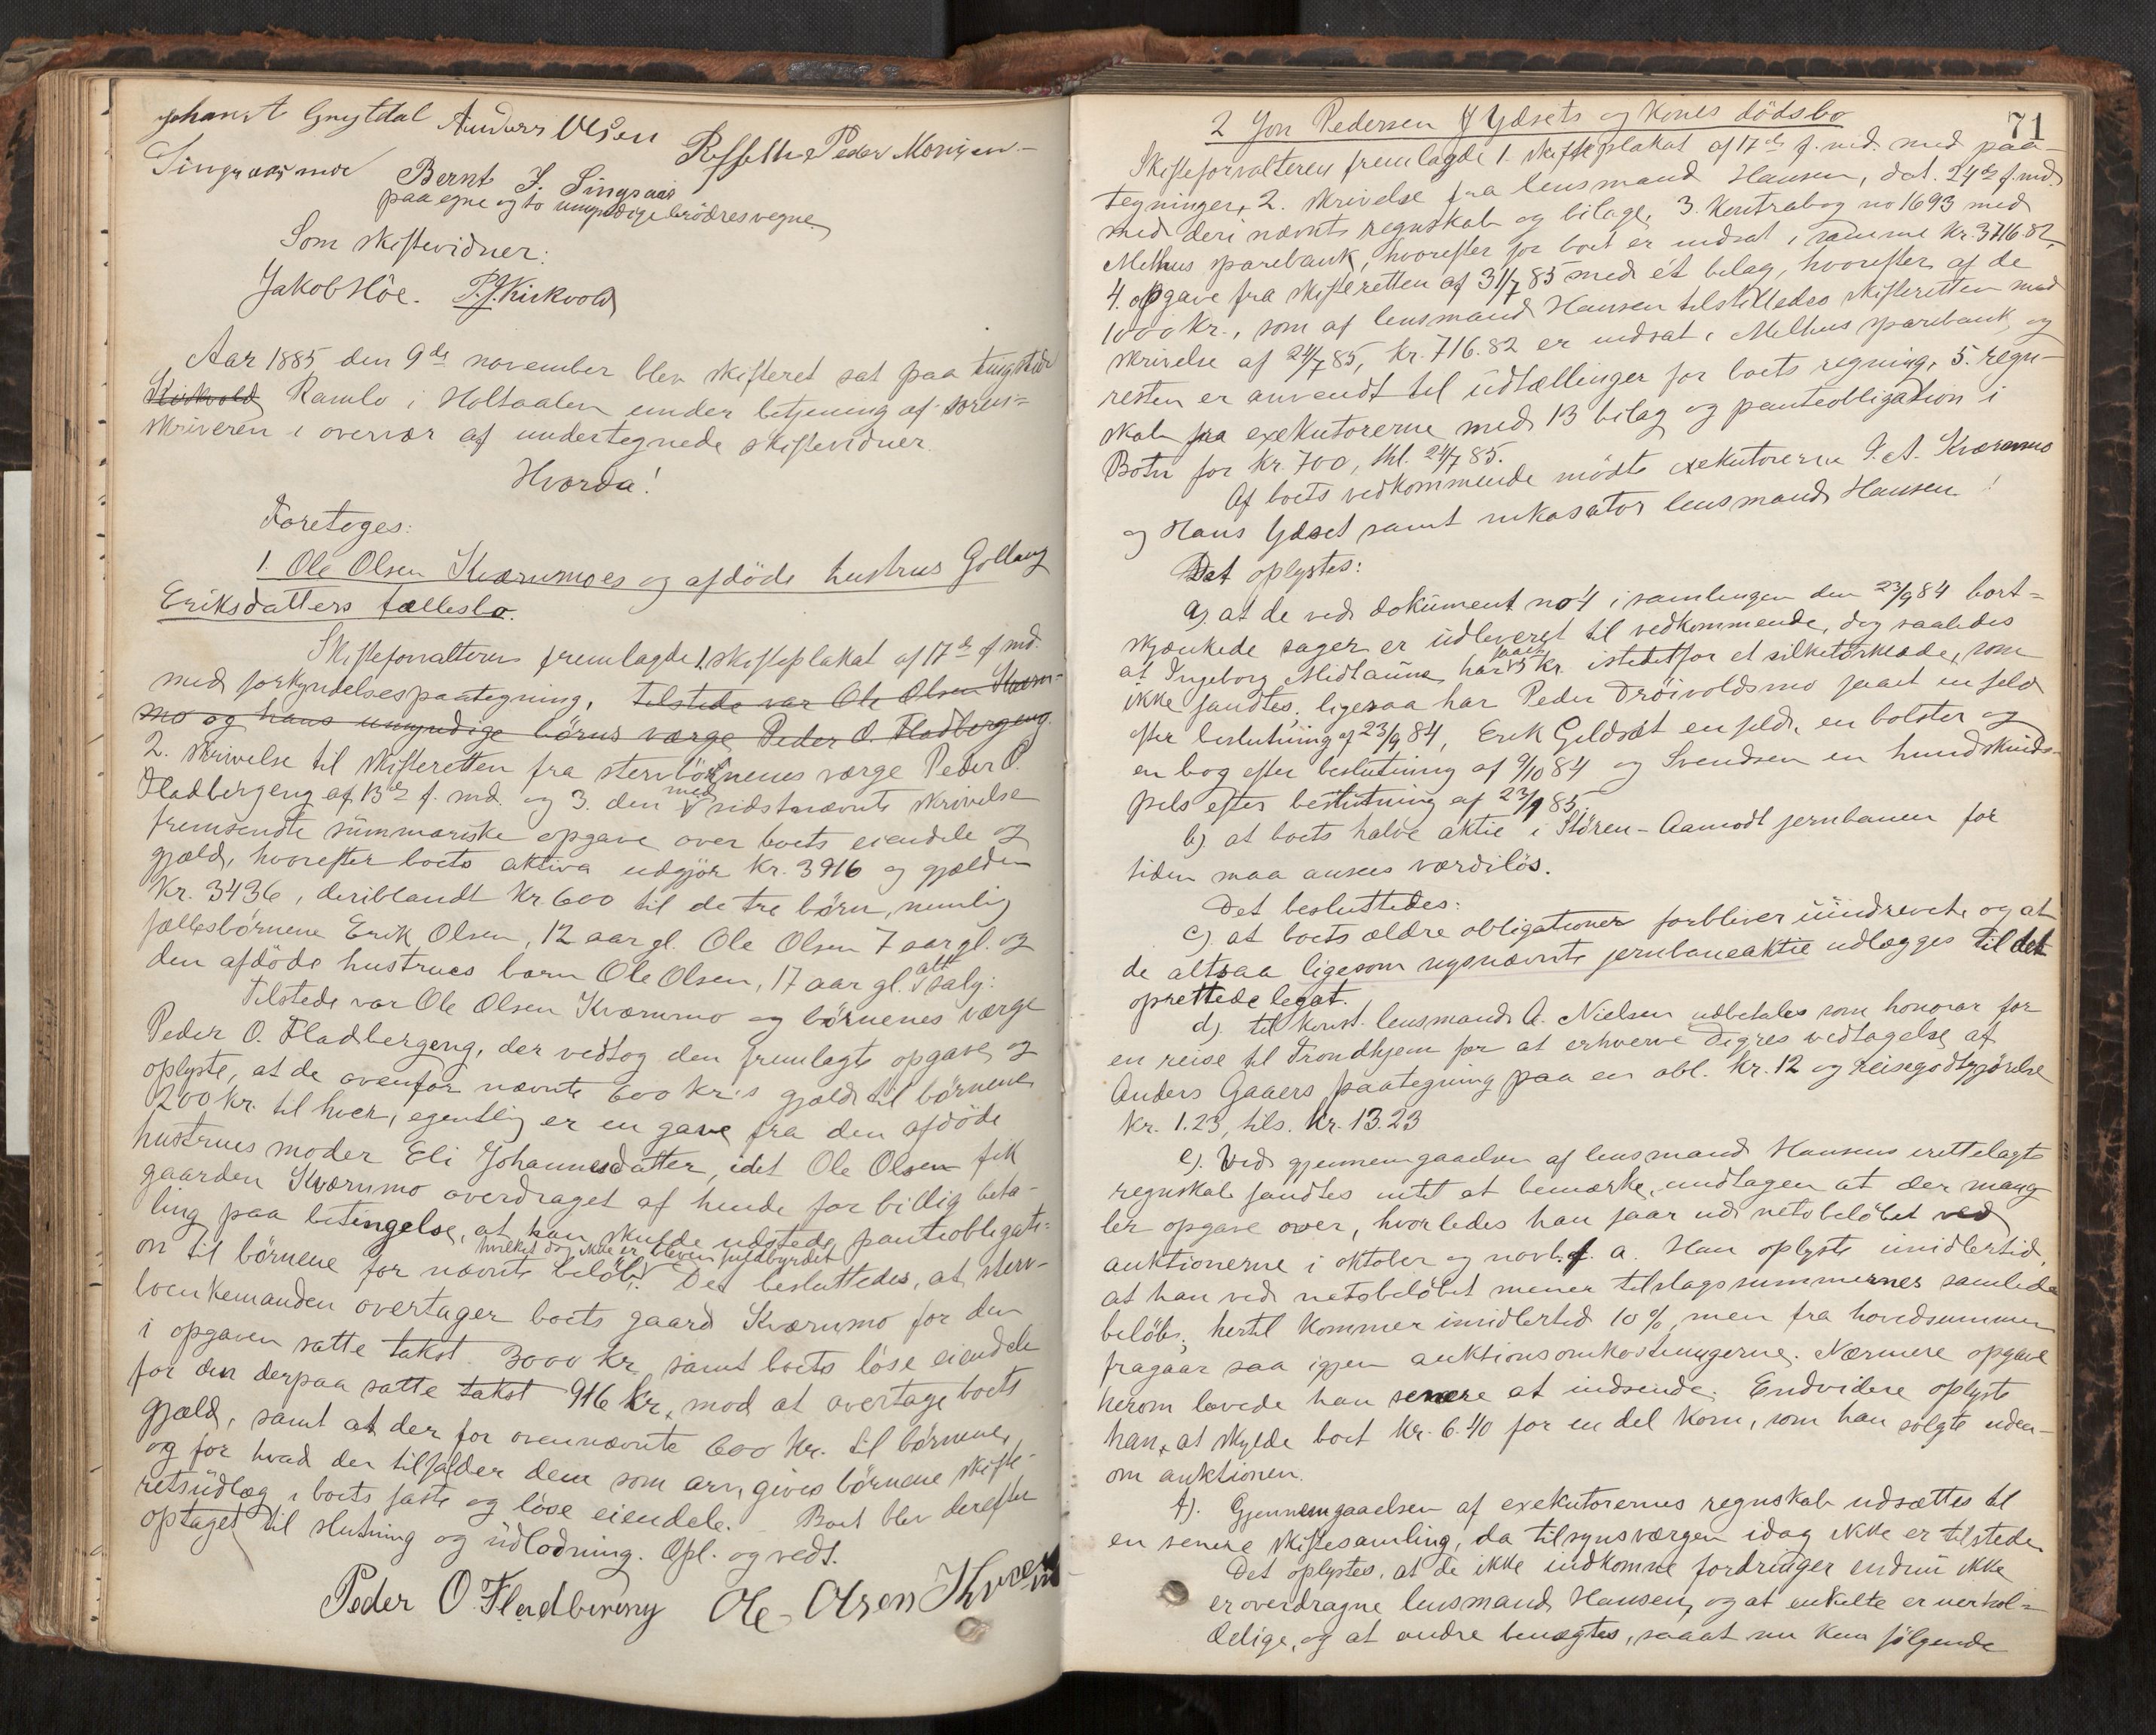 Anders Olsen
Singsaas Peder Monsen
Bernt J. Singsaas
paa egne og to umyndige brødres vegne
Som skiftevidner:
Jakob Höe. P. J. Kirkvold
Aar 1885 den 9de november blev skifteret sat paa tingstedet
Kirkvold Ramlo i Holtaalen under betjening af soren-
skriveren i overvær af undertegnede skiftevidner.
Hvorda!
Foretoges:
1. Ole Olsen Kværnmoes og afdöde hustrus Gollaug
Eriksdatters fællesbo.
Skifteforvalteren fremlagde 1. skifteplakat af 17de f. md.
med forkyndelsespaategning, tilstede var Ole Olsen Kværn-
mo og hans umyndige börns værge Peder O. Fladbergeng.
2. skrivelse til skifteretten fra stervbörnenes værge Peder O.
Fladbergeng af 13de f. md. og 3. den med sidstnævnte skrivelse
fremsendte summariske opgave over boets eiendele og
gjæld, hvorefter boets aktiva udgjör kr. 3916 og gjælden
kr. 3436, deriblandt kr 600 til de tre börn, nemlig
fællesbörnene Erik Olsen, 12 aar gl. Ole Olsen 7 aar gl. og
den afdöde hustrues barn Ole Olsen, 17 aar gl. alt salg:
Tilstede var Ole Olsen Kværnmo og börnenes værge
Peder O. Fladbergeng, der vedtog den fremlagte opgave og
oplyste, at de ovenfor nævnte 600 kr:s gjæld til börnene
200 kr. til hver, egentlig er en gave fra den afdöde
hustrues moder Eli Johannesdatter, idet Ole Olsen fik
gaarden Kværnmo overdraget af hende for billig beta-
ling paa betingelse, at han skulde udstede panteobligati-
on til börnene for nævnte belöb, hvilket dog ikke er bleven fuldbyrdet. Det besluttedes, at sterv-
boenkemanden overtager boets gaard Kværnmo for den
i opgaven satte takst 3000 kr samt boets löse eiendele
for den derpaa satte takst 916 kr, mod at overtage boets
gjæld, samt at der for ovennævnte 600 kr. til börnene,
og for hvad der tilfalder dem som arv, gives börnene skifte-
retsüdlæg i boets faste og löse eiendele. Boet blev derefter
optaget til slutning og üdlodning. Opl. og vedt.
Peder O. Fladbergeng Ole Olsen
71
2 Jon Pedersen Ydsets og kones dödsbo
Skifteforvalteren fremlagde 1. skifteplakat af 17de f. md. med paa-
tegninger, 2. skrivelse fra lensmand Hansen, dat. 24de f. md.
med deri nævnte regnskab og bilage, 3. kontrabog no 1693 med
Melhus sparebank, hvorefter for boet er indsat i samme kr. 3716.82,
4. opgave fra skifteretten af 31/7 85 med ét bilag, hvorefter af de
1000 kr., som af lensmand Hansen tilstilledes skifteretten med
skrivelse af 24/7 85, kr. 716.82 er indsat i Melhus sparebank og
resten er anvendt til üdtællinger for boets regning, 5. regn-
skab fra exekutorerne med 13 bilag og panteobligation i
Botn for kr. 700, thl. 24/7 85.
Af boets vedkommende mödte exekutorerne I. A. Kværnmo
og Hans Ydset samt inkasator lensmand Hansen!
Det oplystes:
a). at de ved dokument no 4 i samlingen den 23/9 84 bort-
skjænkede sager er üdleveret til vedkommende, dog saaledes
at Ingeborg Midtaune har faaet 5 kr. istedetfor et silketörklæde, som
ikke fandtes, ligesaa har Peder Dröivoldsmo faaet en feld
efter beslutning af 23/9 84, Erik Geldsæt en feld, en bolster og
en bog efter beslutning af 9/10 84 og Svendsen en hundskinds-
pels efter beslutning af 23/9 85.
b) at boets halve aktie i Stören-Aamodt jernbanen for
tiden maa ansees værdilös.
Det besluttedes:
c). at boets ældre obligationer forbliver üindrevete og at
de altsaa ligesom nysnævnte jernbaneaktie udlægges til det
oprettede legat.
d). til konst. lensmand A. Nielsen udbetales som honorar for
en reise til Trondhjem for at erhverve Digres vedtagelse af
Anders Gaaers paategning paa en obl. kr. 12 og reisegodtgjörelse
kr. 1.23, tils. kr. 13.23
e). Ved gjennemgaaelsen af lensmand Hansens irettelagte
regnskab fandtes intet at bemærke, undtagen at der mang-
ler opgave over, hvorledes han faar ud netobelöbet ved
auktionerne i oktober og novb. f. a. Han oplyste imidlertid,
at han ved netobelöbet mener tilslagssummernes samlede
belöb, hertil kommer imidlertid 10 %, men fra hovedsummen
fragaar saa igjen auktionsomkostningerne. Nærmere opgave
herom lovede han senere at indsende. Endvidere oplyste
han, at skylde boet kr. 6.40 for en del korn, som han solgte uden-
om auktionen.
f). Gjennemgaaelsen af exekutorernes regnskab udsættes til
en senere skiftesamling, da tilsynsværgen idag ikke er tilstede.
Det oplystes, at de ikke indkomne fordringer endnu ikke
er overdragne lensmand Hansen, og at enkelte er uerhol-
delige, og at andre benægtes, saaat nu kun fölgende